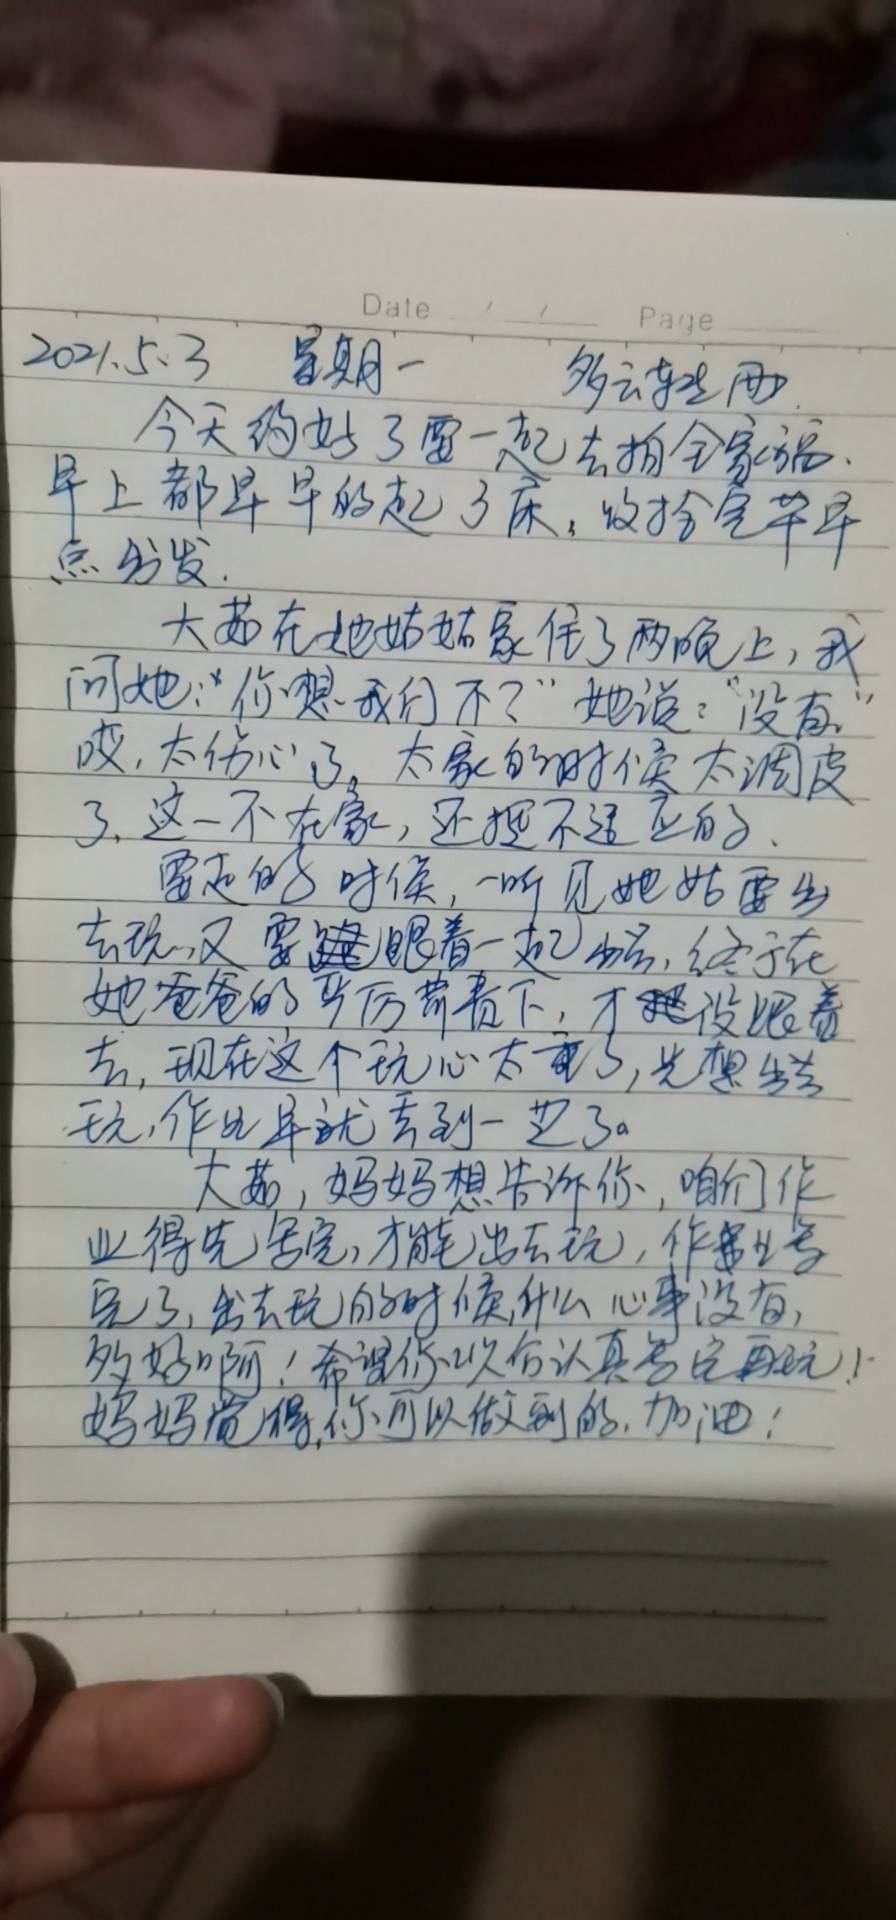 Date / / Page
2021.5.3 星期一 多云转雨.
今天约好了要一起去拍全家福.
早上都早早的起了床,收拾完毕早
点出发.
大茹在她姑姑家住了两晚上,我
问她:“你想我们不?”她说:“没有.”
哎,太伤心了。太家的时候太调皮
了,这一不在家,还挺不适应的.
要走的时候,一听见她姑要出
去玩,又要跟着一起出去,终于在
她爸爸的严厉苛责下,才没跟着
去,现在这个玩心太重了,光想出去
玩,作业早就丢到一边了。
大茹,妈妈想告诉你,咱们作
业得先写完,才能出去玩,作业写
完了,出去玩的时候,什么心事没有,
多好啊!希望你以后认真写完再玩!
妈妈觉得,你可以做到的.加油!